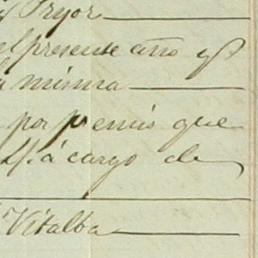 Pryor
el presente año y
la misma
por premio que
á cargo de
Vitalba